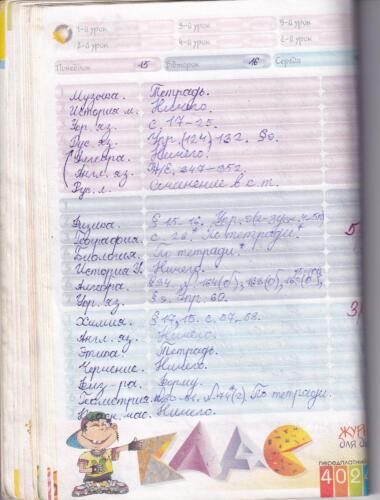 1-й урок 3-й урок 5-й урок
2-й урок 4-й урок 2-й урок
Понеділок 15 Вівторок 16 Середа
Музыка. Тетрадь.
История м. Ничего.
Укр. яз. с. 17-25.
Рус. яз. Упр. (124) 132.
Алгебра. Ничего.
Англ. яз. 347-352.
Рус. л. Сочинение в с.т.
Физика. § 15-16. Упр.
География. с. По тетради.
Биология. По тетради.
История У. Ничего.
Алгебра.
Укр. яз. § 9. Упр. 60.
Химия. § 17, 18. с. 57-58.
Англ. яз. Ничего.
Этика. Тетрадь.
Черчение. Ничего.
Физ-ра. Форму.
Геометрия. По тетради.
Ничего.
КЛАС
ЖУР
для ш
передплатний
402